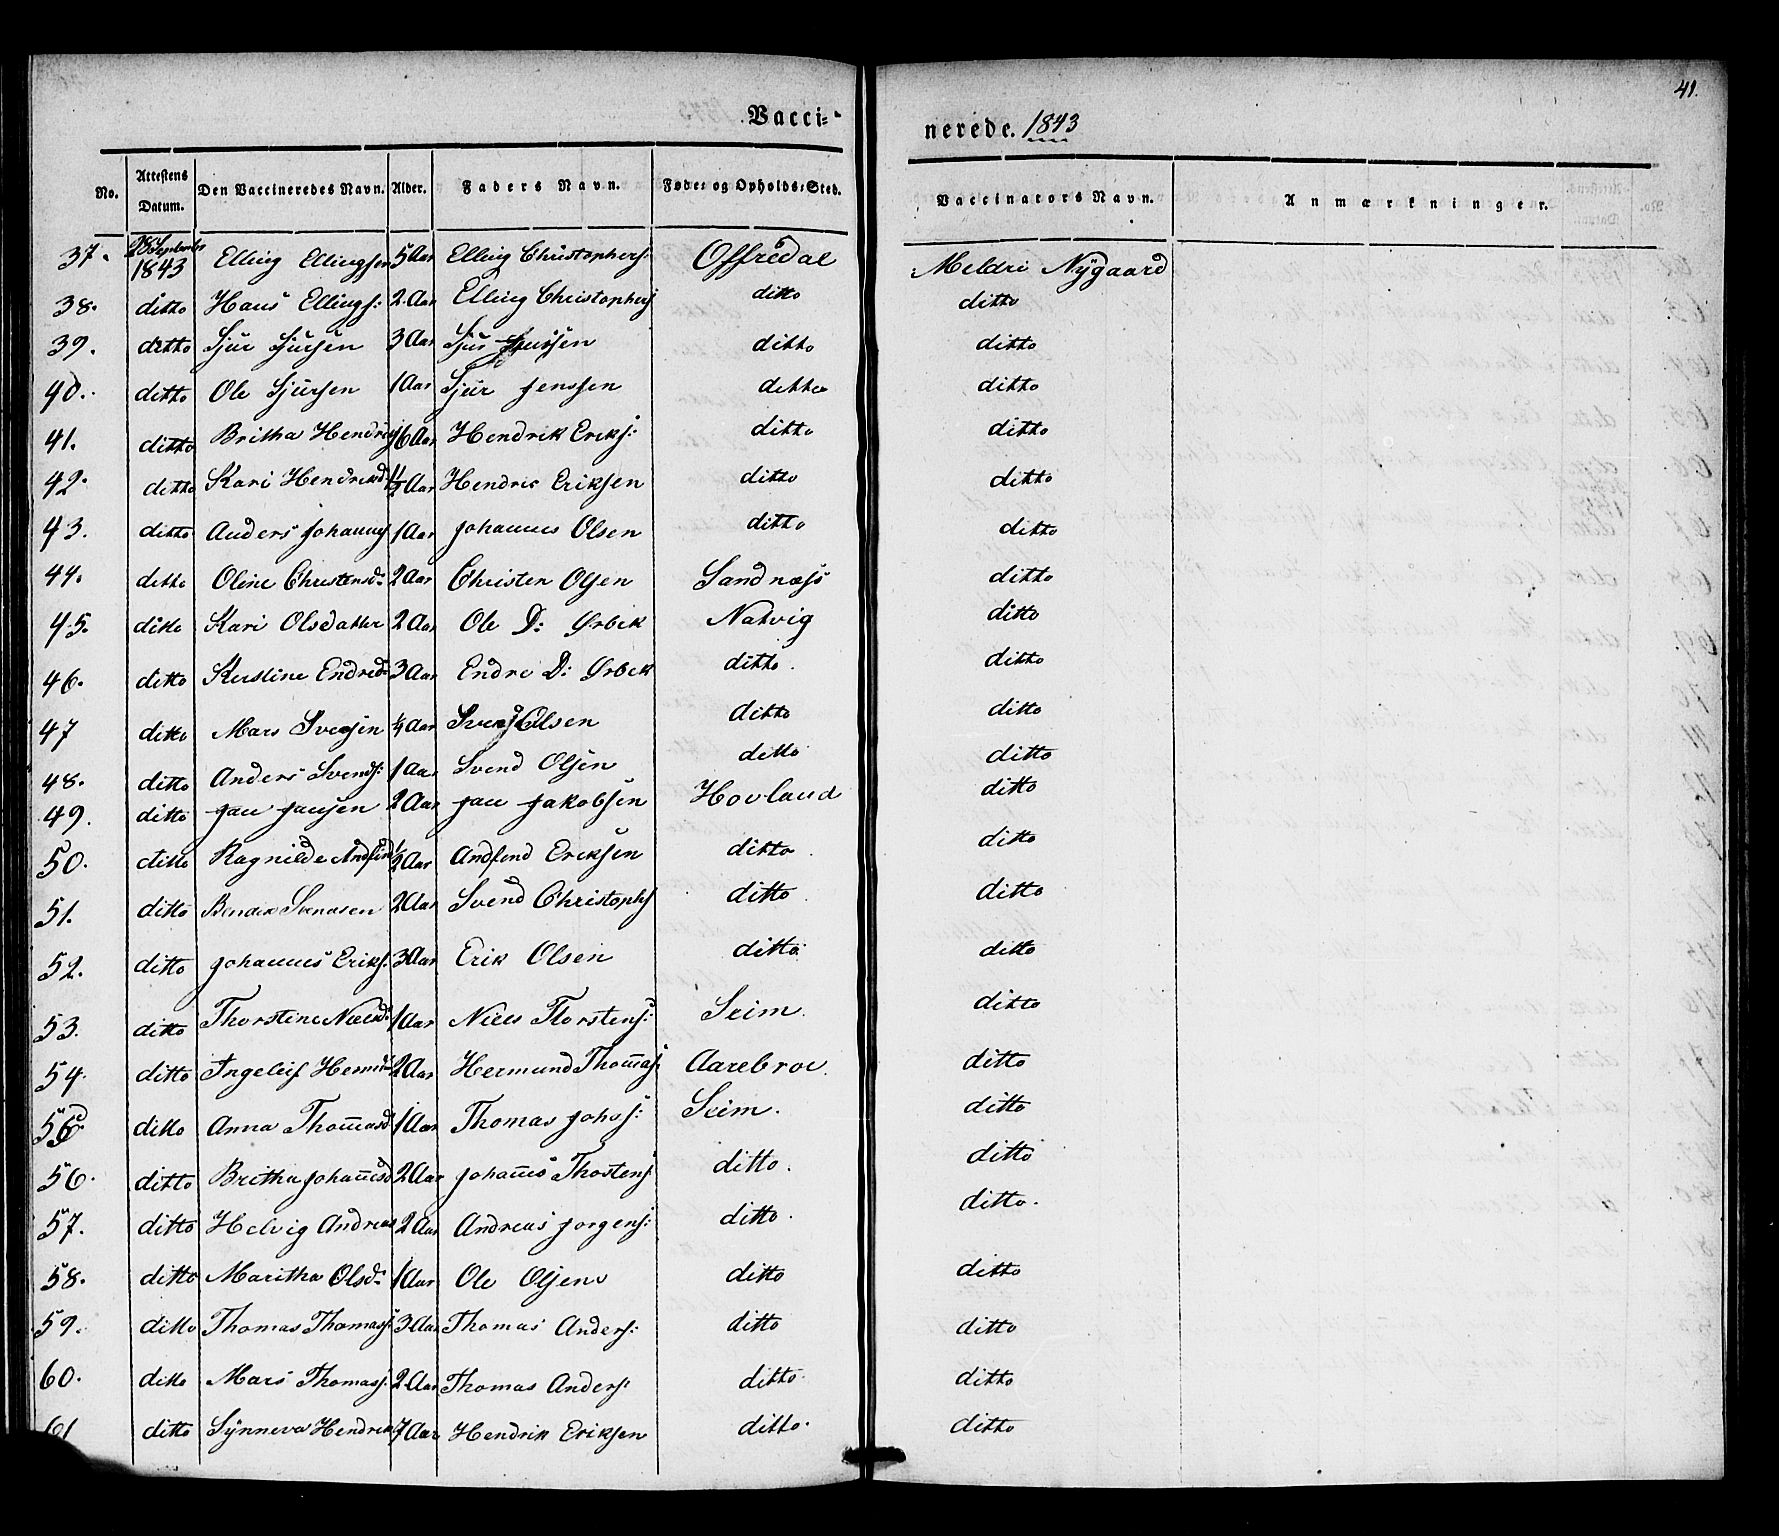 41.
Vacci-
nerede. 1843
No. | Attestens Datum. | Den Vaccineredes Navn. | Alder. | Faders Navn. | Føde- og Opholds-Sted. | Vaccinators Navn. | Anmærkninger.
37. | 28 September 1843 | Elling Ellingsen | 5 Aar | Elling Christophers: | Offredal | Meldri Nygaard
38. | ditto | Hans Ellings: | 2 Aar | Elling Christophers | ditto | ditto
39. | ditto | Sjur Sjursen | 3 Aar | Sjur | ditto | ditto
40. | ditto | Ole Sjursen | 1 Aar | Sjur Jenssen | ditto | ditto
41. | ditto | Britha | 6 Aar | Hendrik Eriks: | ditto | ditto
42. | ditto | Kari Hendriksd | 1½ Aar | Hendric Eriksen | ditto | ditto
43. | ditto | Anders Johannes | 1 Aar | Johannes Olsen | ditto | ditto
44. | ditto | Oline Christensd: | 2 Aar | Christen Olsen | Sandnæss | ditto
45. | ditto | Kari Olsdatter | 2 Aar | Ole D: Ørbek | Natvig | ditto
46. | ditto | Kirstine Endred: | 3 Aar | Endre D: Ørbek | ditto. | ditto
47 | ditto | Mars Svensen | ¼ Aar | Svend Olsen | ditto | ditto
48. | ditto | Anders Svends: | 1 Aar | Svend Olsen | ditto | ditto
49. | ditto | Jan Jansen | 2 Aar | Jan Jakobsen | Hovland | ditto
50. | ditto | Ragnilde Andfind | ½ Aar | Andfend Eriksen | ditto. | ditto
51. | ditto | Svendsen | 2 Aar | Svend Christophs | ditto. | ditto
52. | ditto | Johannes Eriks: | 3 Aar | Erik Olsen | ditto | ditto
53. | ditto | Thorstine Nielsd: | 1 Aar | Niels Thorstens: | Seim. | ditto
54. | ditto | Ingeleif Hermd: | 2 Aar | Hermund Thom̅as: | Aarebroe. | ditto
55 | ditto | Anna Thom̅asd | 1 Aar | Thomas Johs: | Seim. | ditto
56. | ditto | Britha Johan̅esd | 2 Aar | Johan̅es Thostens | ditto. | ditto
57. | ditto | Helvig Andreas | 2 Aar | Andreas Jorgens: | ditto. | ditto.
58. | ditto | Maritha Olsd: | 1 Aar | Ole Olsen | ditto | ditto
59. | ditto | Thomas Thomass: | 3 Aar | Thomas Anders: | ditto | ditto
60. | ditto | Mars Thomass: | 2 Aar | Thomas Anders: | ditto. | ditto
61 | ditto | Synneva Hendrik | 7 Aar | Hendrik Eriksen | ditto. | ditto